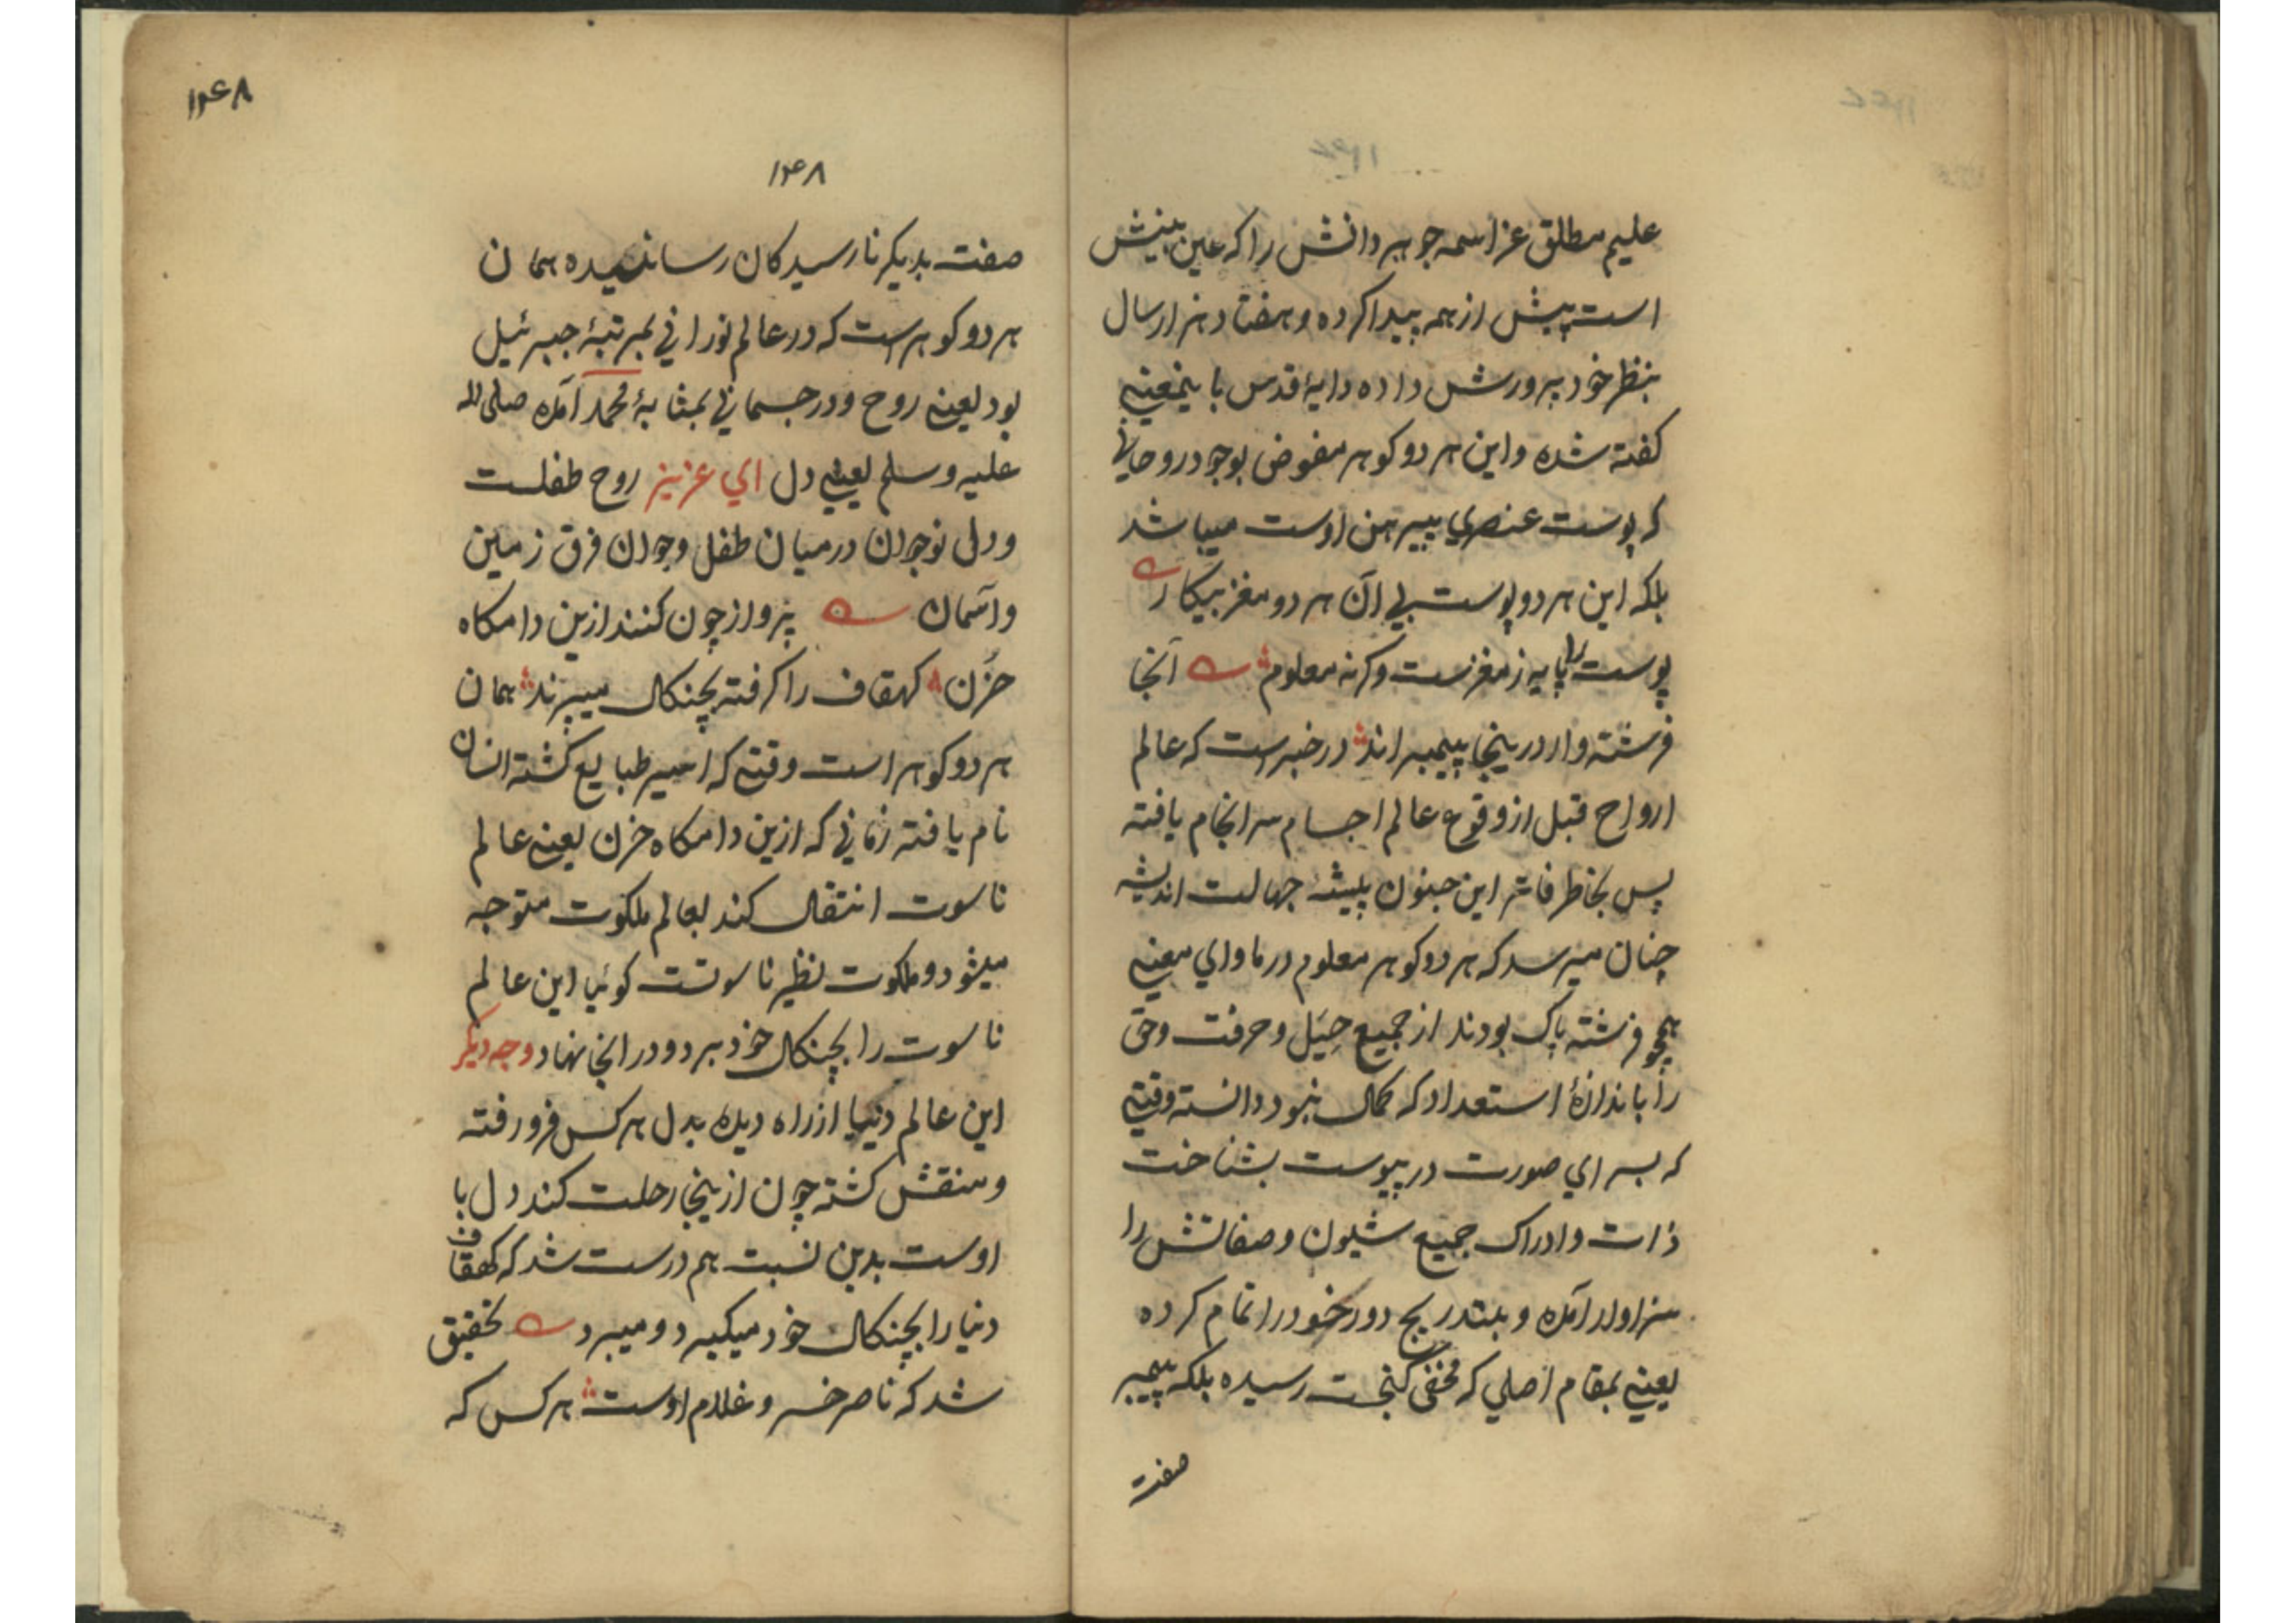 علیم مطلق عز اسمه جوهر دانش را که عین بینش
است پیش از همه پیدا کرده و هفتاد هزار سال
بنظر خود پرورش داده دایۀ قدس باینمعنی
کفته شده و این هر دو کوهر مفوض بوجود روحانی
که پوست عنصری پیرهن اوست میباشد
بلکه این هر دو پوست بی آن هر دو مغز بیکار
پوست را پایه ز مغزست وکرنه معلوم آنجا
فرشته وار درینجا پیمبراند در خبر است که عالم
ارواح قبل از وقوع عالم اجسام سرانجام یافته
پس بخاطر فاتر این جنون پیشۀ جهالت اندیشه
چنان میرسد که هر دو کوهر معلوم در ماورای معنی
همچو فرشته پاک بودند از جمیع حِیَل و حرفت و حق
را باندازۀ استعداد که کمال نبود دانسته وقتی
که بسرای صورت در پیوست بشناخت
ذات و ادراک جمیع شیون و صفاتش را
سزاوار آمده و بتدریج دور خود را تمام کرده
یعنی بمقام اصلی که مخفی کنجست رسیده بلکه پیمبر
صفت
۱۲۴۸
۱۲۴۸
صفت بدیکر نارسیدکان رسانیده همان
هر دو کوهر است که در عالم نورانی بمرتبۀ جبرئیل
بود یعنی روح و در جسمانی بمثابۀ محمد آمده صلی الله
علیه وسلم یعنی دل ای عزیز روح طفلست
و دل نوجوان درمیان طفل و جوان فرق زمین
و آسمان پرواز چون کنند ازین دامکاه
حُزن کهقاف را کرفته بچنکال میپرند همان
هر دو کوهر است وقتی که اسیر طبایع کشته انسان
نام یافته زمانی که ازین دامکاه حزن یعنی عالم
ناسوت انتقال کند بعالم ملکوت متوجه
میشود و ملکوت نظیر ناسوتست کوئیا این عالم
ناسوت را بچنکال خود برد و در انجا نهاد وجه دیکر
این عالم دنیا از راه دیده بدل هر کس فرو رفته
و منقش کشته چون ازینجا رحلت کند دل با
اوست بدین نسبت هم درست شد که کهقاف
دنیا را بچنکال خود میکیرد و میبرد تحقیق
شد که ناصر خسرو غلام اوست هر کس که